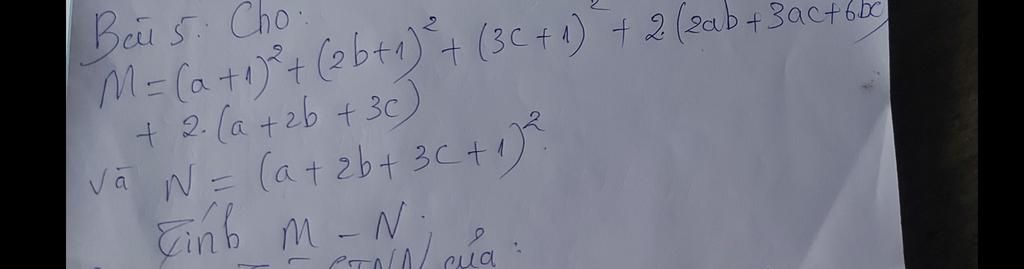 Bài 5: Cho:
M = (a+1)² + (2b+1)² + (3c+1)² + 2.(2ab+3ac+6bc)
+ 2.(a+2b+3c)
và N = (a+2b+3c+1)².
Tính M - N;
của: